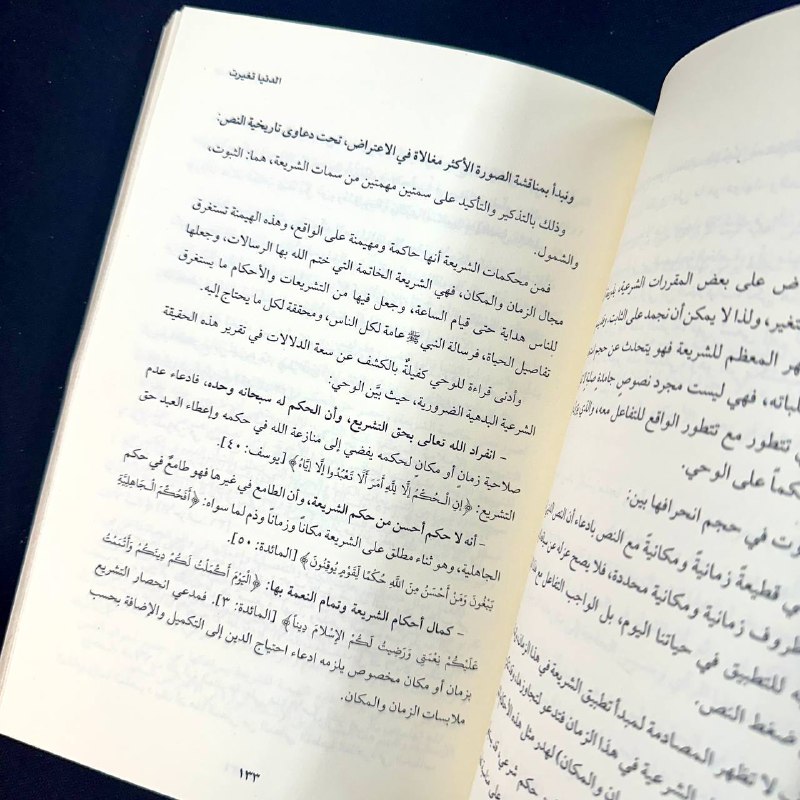 الدنيا تغيرت
ونبدأ بمناقشة الصورة الأكثر مغالاة في الاعتراض، تحت دعاوى تاريخية النص:
وذلك بالتذكير والتأكيد على سمتين مهمتين من سمات الشريعة، هما: الثبوت،
والشمول.
فمن محكمات الشريعة أنها حاكمة ومهيمنة على الواقع، وهذه الهيمنة تستغرق
مجال الزمان والمكان، فهي الشريعة الخاتمة التي ختم الله بها الرسالات، وجعلها
للناس هداية حتى قيام الساعة، وجعل فيها من التشريعات والأحكام ما يستغرق
تفاصيل الحياة، فرسالة النبي ﷺ عامة لكل الناس، ومحققة لكل ما يحتاج إليه.
وأدنى قراءة للوحي كفيلةٌ بالكشف عن سعة الدلالات في تقرير هذه الحقيقة
الشرعية البدهية الضرورية، حيث بيَّن الوحي:
- انفراد الله تعالى بحق التشريع، وأن الحكم له سبحانه وحده، فادعاء عدم
صلاحية زمان أو مكان لحكمه يفضي إلى منازعة الله في حكمه وإعطاء العبد حق
التشريع: ﴿إِنِ الْحُكْمُ إِلَّا لِلَّهِ أَمَرَ أَلَّا تَعْبُدُوا إِلَّا إِيَّاهُ﴾ [يوسف: ٤٠].
- أنه لا حكم أحسن من حكم الشريعة، وأن الطامع في غيرها فهو طامعٌ في حكم
الجاهلية، وهو ثناء مطلق على الشريعة مكاناً وزماناً وذم لما سواه: ﴿أَفَحُكْمَ الْجَاهِلِيَّةِ
يَبْغُونَ وَمَنْ أَحْسَنُ مِنَ اللَّهِ حُكْمًا لِقَوْمٍ يُوقِنُونَ﴾ [المائدة: ٥٠].
- كمال أحكام الشريعة وتمام النعمة بها: ﴿الْيَوْمَ أَكْمَلْتُ لَكُمْ دِينَكُمْ وَأَتْمَمْتُ
عَلَيْكُمْ نِعْمَتِي وَرَضِيتُ لَكُمُ الْإِسْلَامَ دِينًا﴾ [المائدة: ٣]. فمدعي انحصار التشريع
بزمان أو مكان مخصوص يلزمه ادعاء احتياج الدين إلى التكميل والإضافة بحسب
ملابسات الزمان والمكان.
١٣٣
على بعض المقررات الشرعية،
ولذا لا يمكن أن نجمد على الثابت،
المعظم للشريعة فهو يتحدث عن حجم
فهي ليست مجرد نصوصٍ جامدة
تتطور مع تتطور الواقع للتفاعل معه،
على الوحي.
في حجم انحرافها بين:
قطيعةً زمانيةً ومكانيةً مع النص بادعاء أن النص
زمانية ومكانية محددة، فلا يصح عزله عن
للتطبيق في حياتنا اليوم، بل الواجب التفاعل
ضغط النص.
لا تظهر المصادمة لمبدأ تطبيق الشريعة في هذا
الشرعية في هذا الزمان فتدعو لتجاوزها،
والمكان) لهدر مثل هذه
حكم شرعي